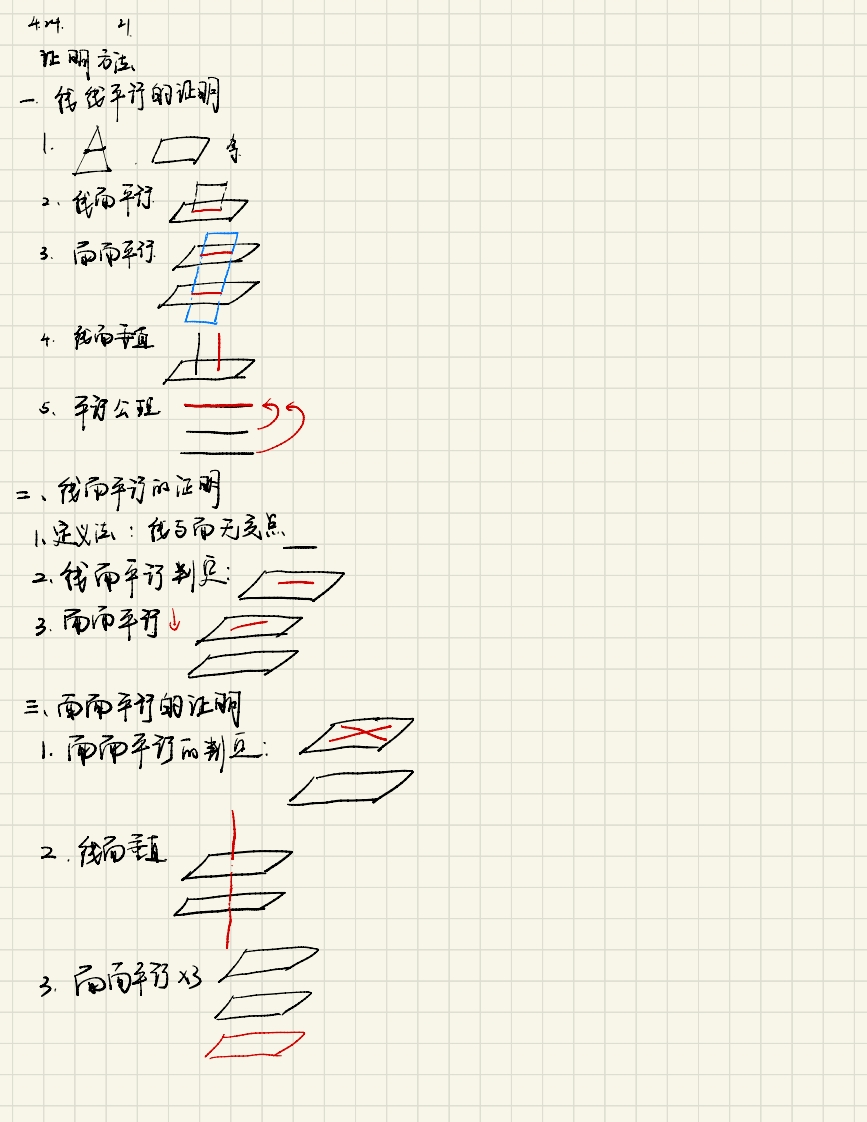 4.24. 21
证明方法
一. 线线平行的证明
1. 等
2. 线面平行
3. 面面平行
4. 线面垂直
5. 平行公理
二、线面平行的证明
1. 定义法：线与面无交点
2. 线面平行判定：
3. 面面平行
三、面面平行的证明
1. 面面平行的判定：
2. 线面垂直
3. 面面平行 ×3